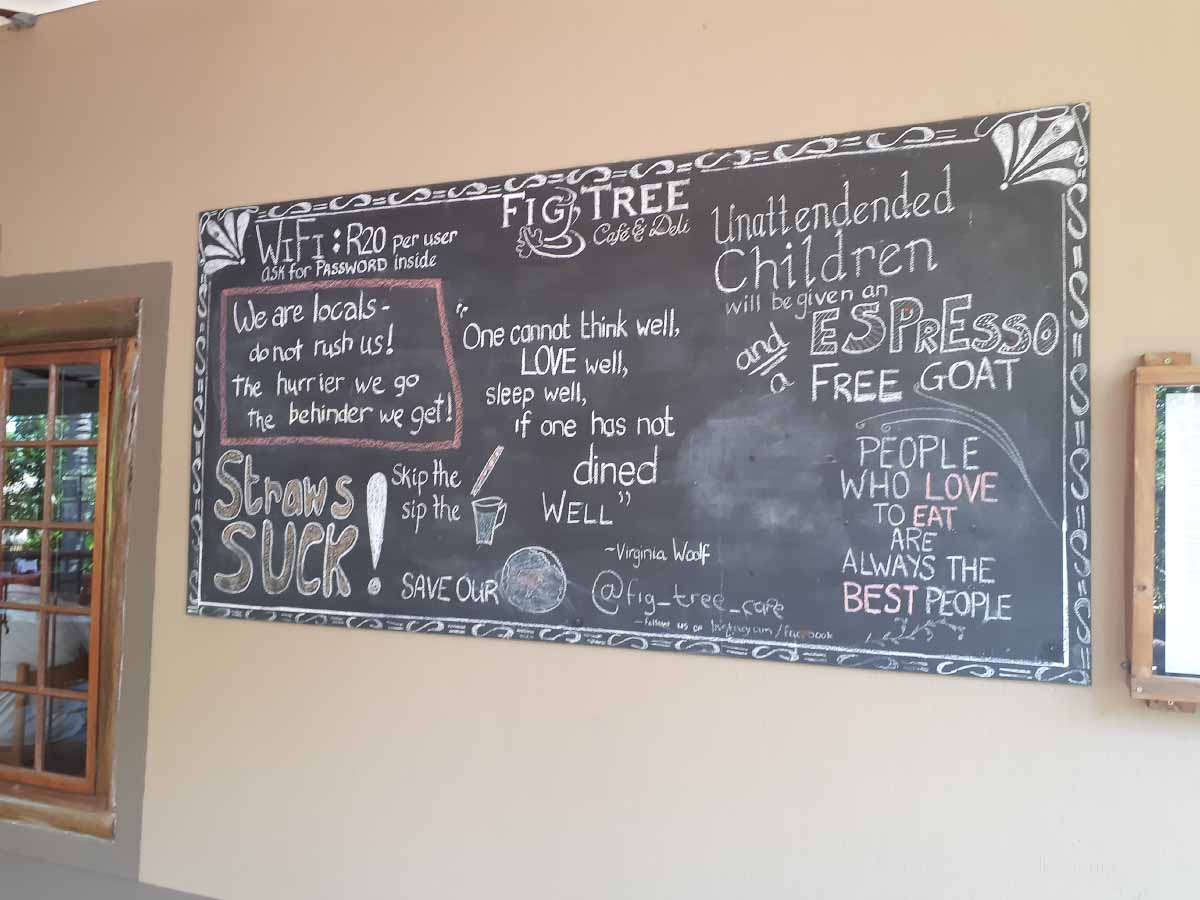 FIG TREE
Café & Deli
WiFi : R20 per user
ask for PASSWORD inside
We are locals -
do not rush us!
the hurrier we go
the behinder we get!
Straws
SUCK!
Skip the
sip the
SAVE OUR
"One cannot think well,
LOVE well,
sleep well,
if one has not
dined
WELL"
~Virginia Woolf
@fig_tree_cafe
- Follow us on Instagram / Facebook
Unattendended
Children
will be given an
ESPrESSO
and
a
FREE GOAT
PEOPLE
WHO LOVE
TO EAT
ARE
ALWAYS THE
BEST PEOPLE